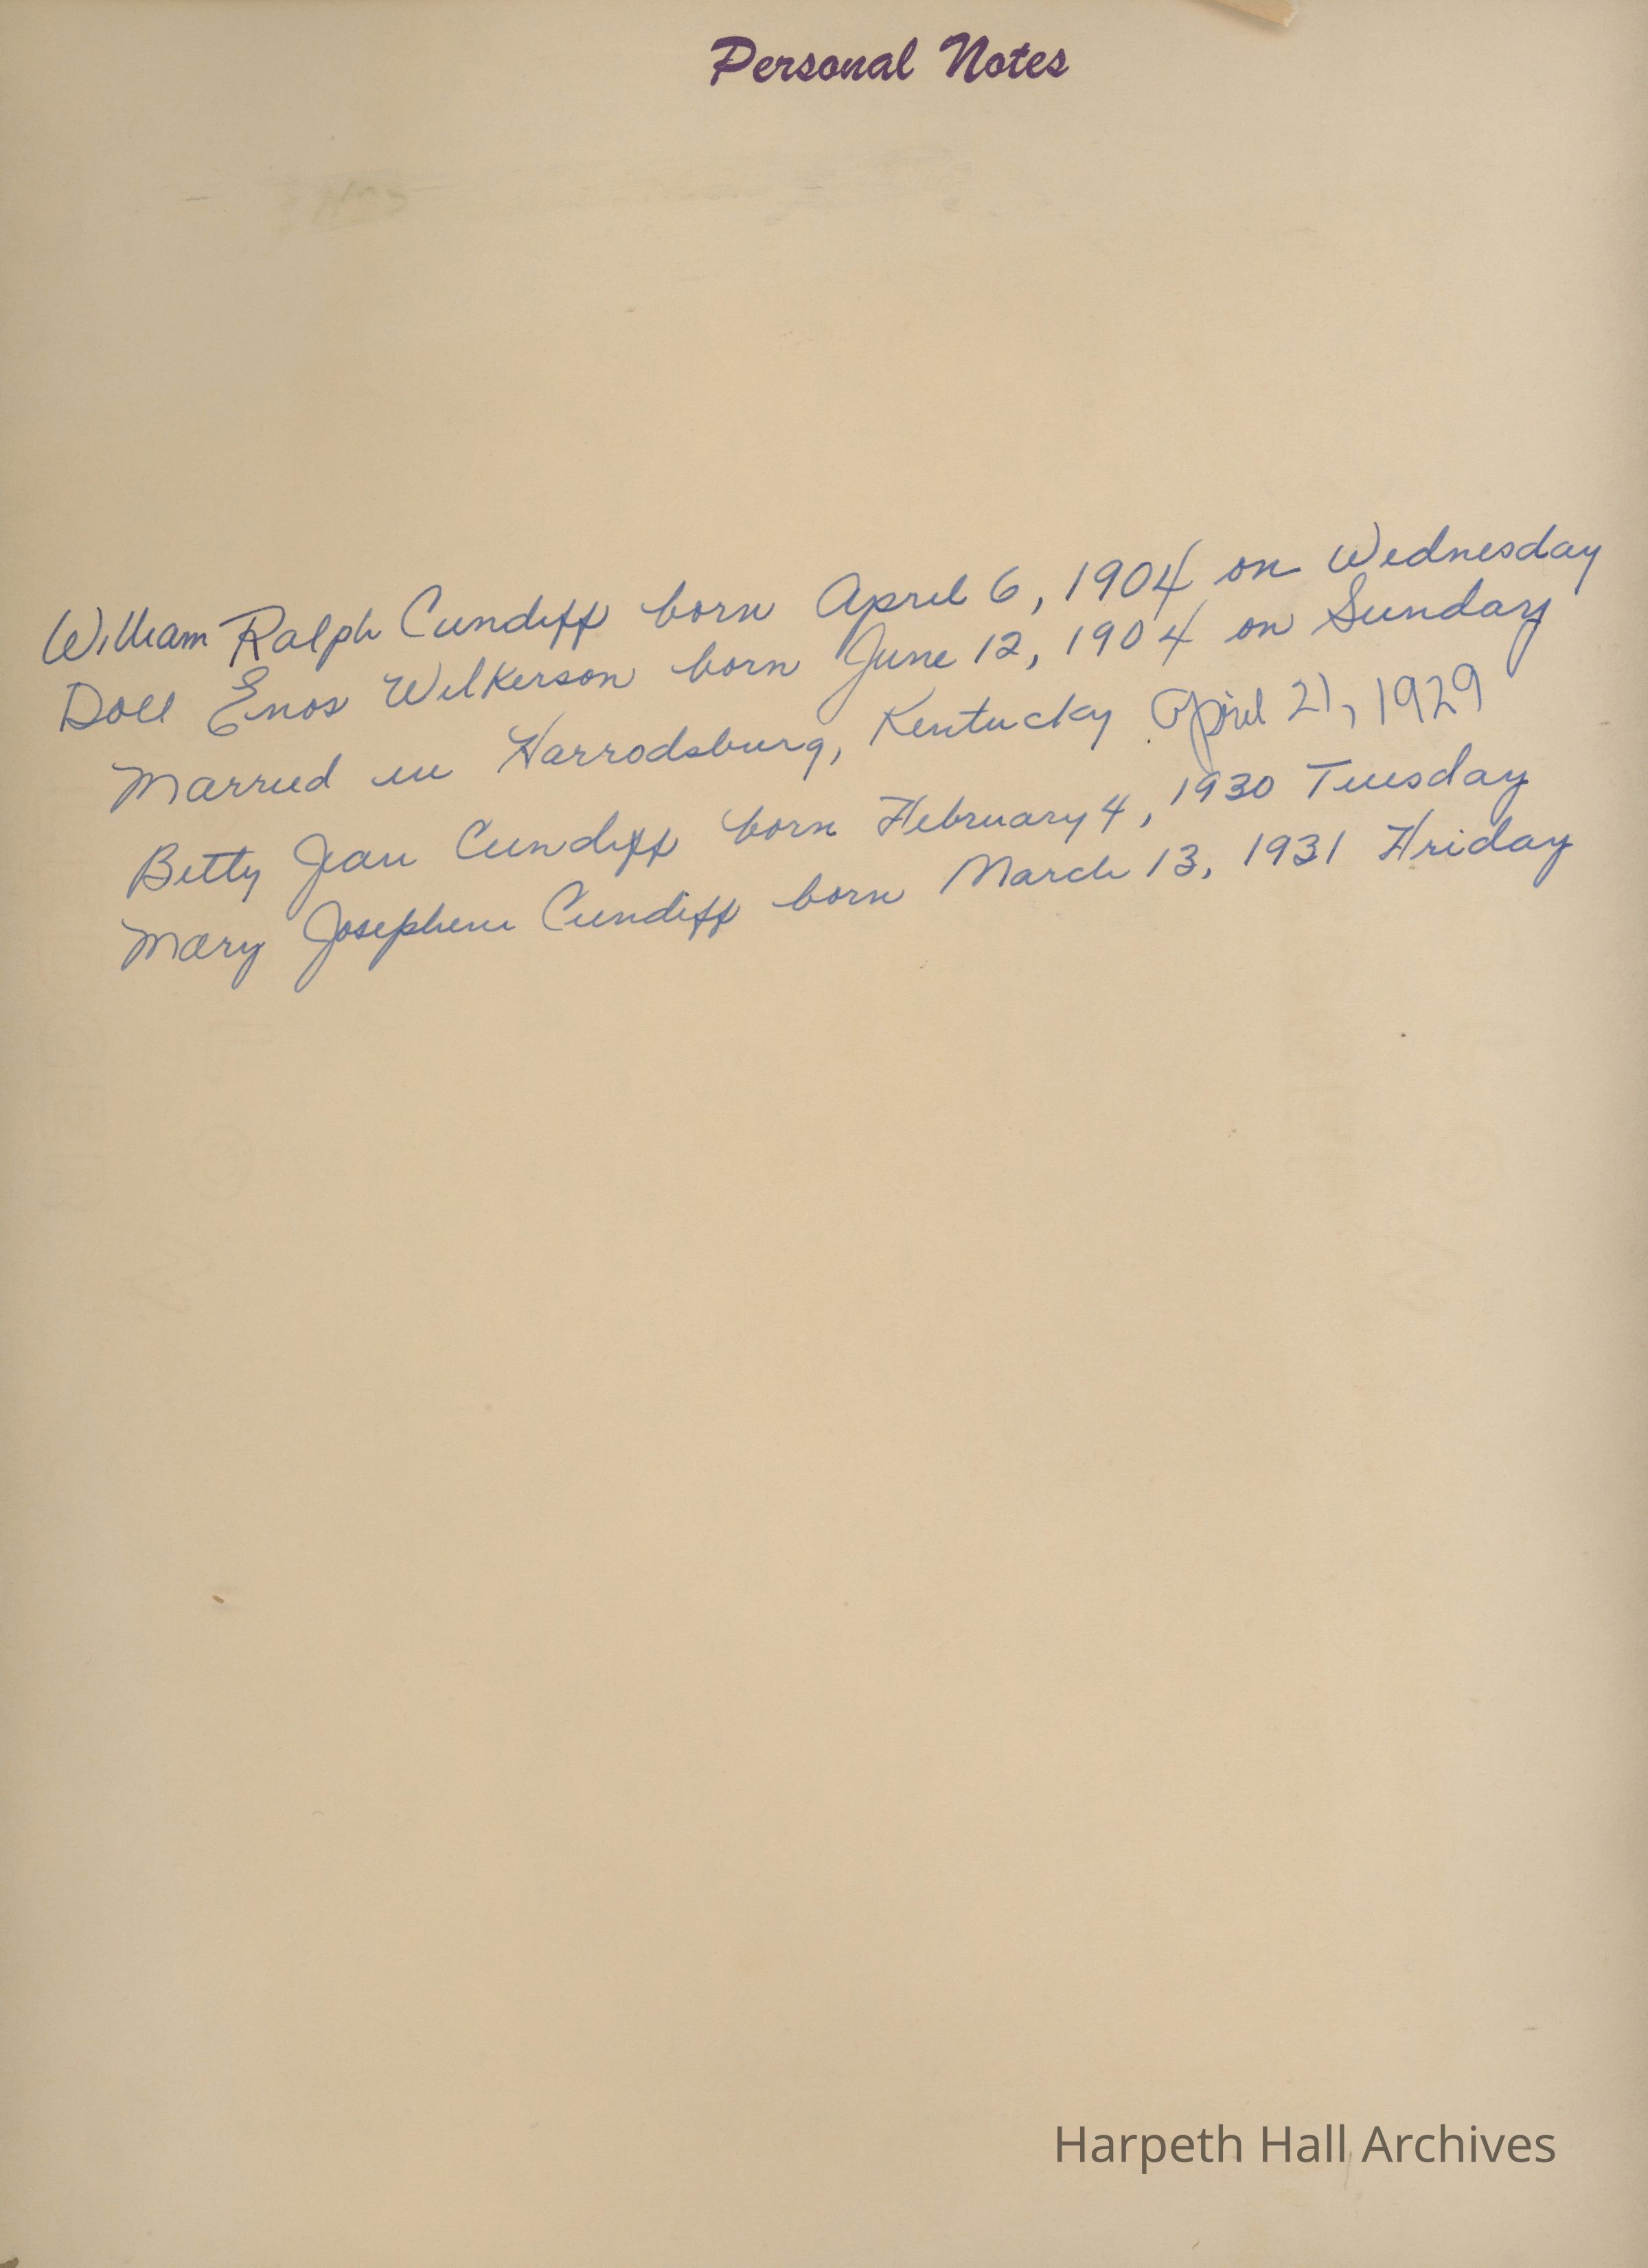 Personal Notes
William Ralph Cundiff born April 6, 1904 on Wednesday
Doll Enos Wilkerson born June 12, 1904 on Sunday
Married in Harrodsburg, Kentucky April 21, 1929
Betty Jean Cundiff born February 4, 1930 Tuesday
Mary Josephene Cundiff born March 13, 1931 Friday
Harpeth Hall Archives